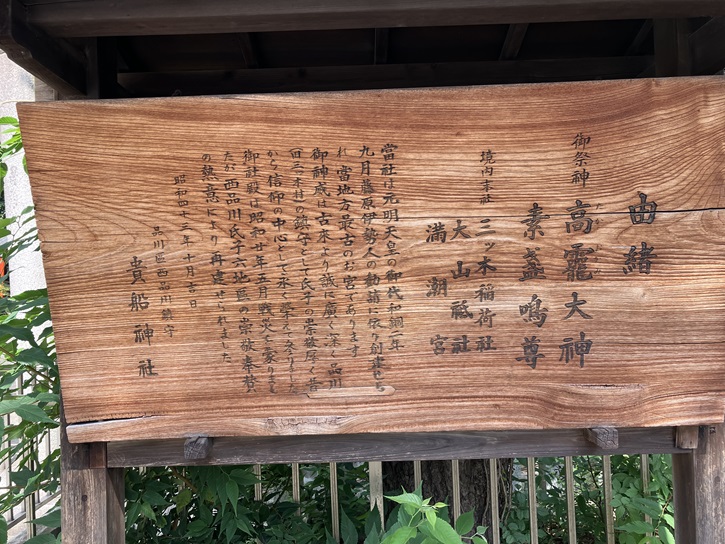 由緒
御祭神 高龗大神
素盞鳴尊
境内末社 三ッ木稲荷社
大山祗社
満潮宮
當社は元明天皇の御代和銅二年
九月藤原伊勢人の勧請に依り創建せら
れ當地方最古のお宮であります
御神威は古来より誠に廣く深く品川
(旧三ッ木村)の鎮守として氏子の崇敬厚く昔
から信仰の中心として永く栄えて参りました
御社殿は昭和廿年五月戦火を蒙りまし
たが西品川氏子六地区の崇敬奉賛
の熱意により再建せられました
昭和四十三年十月吉日
品川区西品川鎮守
貴船神社